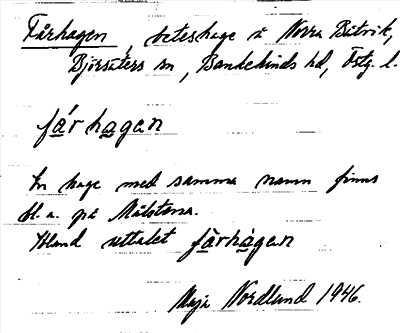 Fårhagen, beteshage å Norra Båtvik,
Björsäters sn, Bankekinds hd, Östg. l.
fårhagan
En hage med samma namn finns
bl. a. på Målstena.
Ibland uttalet fårhagen
Maja Nordlund 1946.